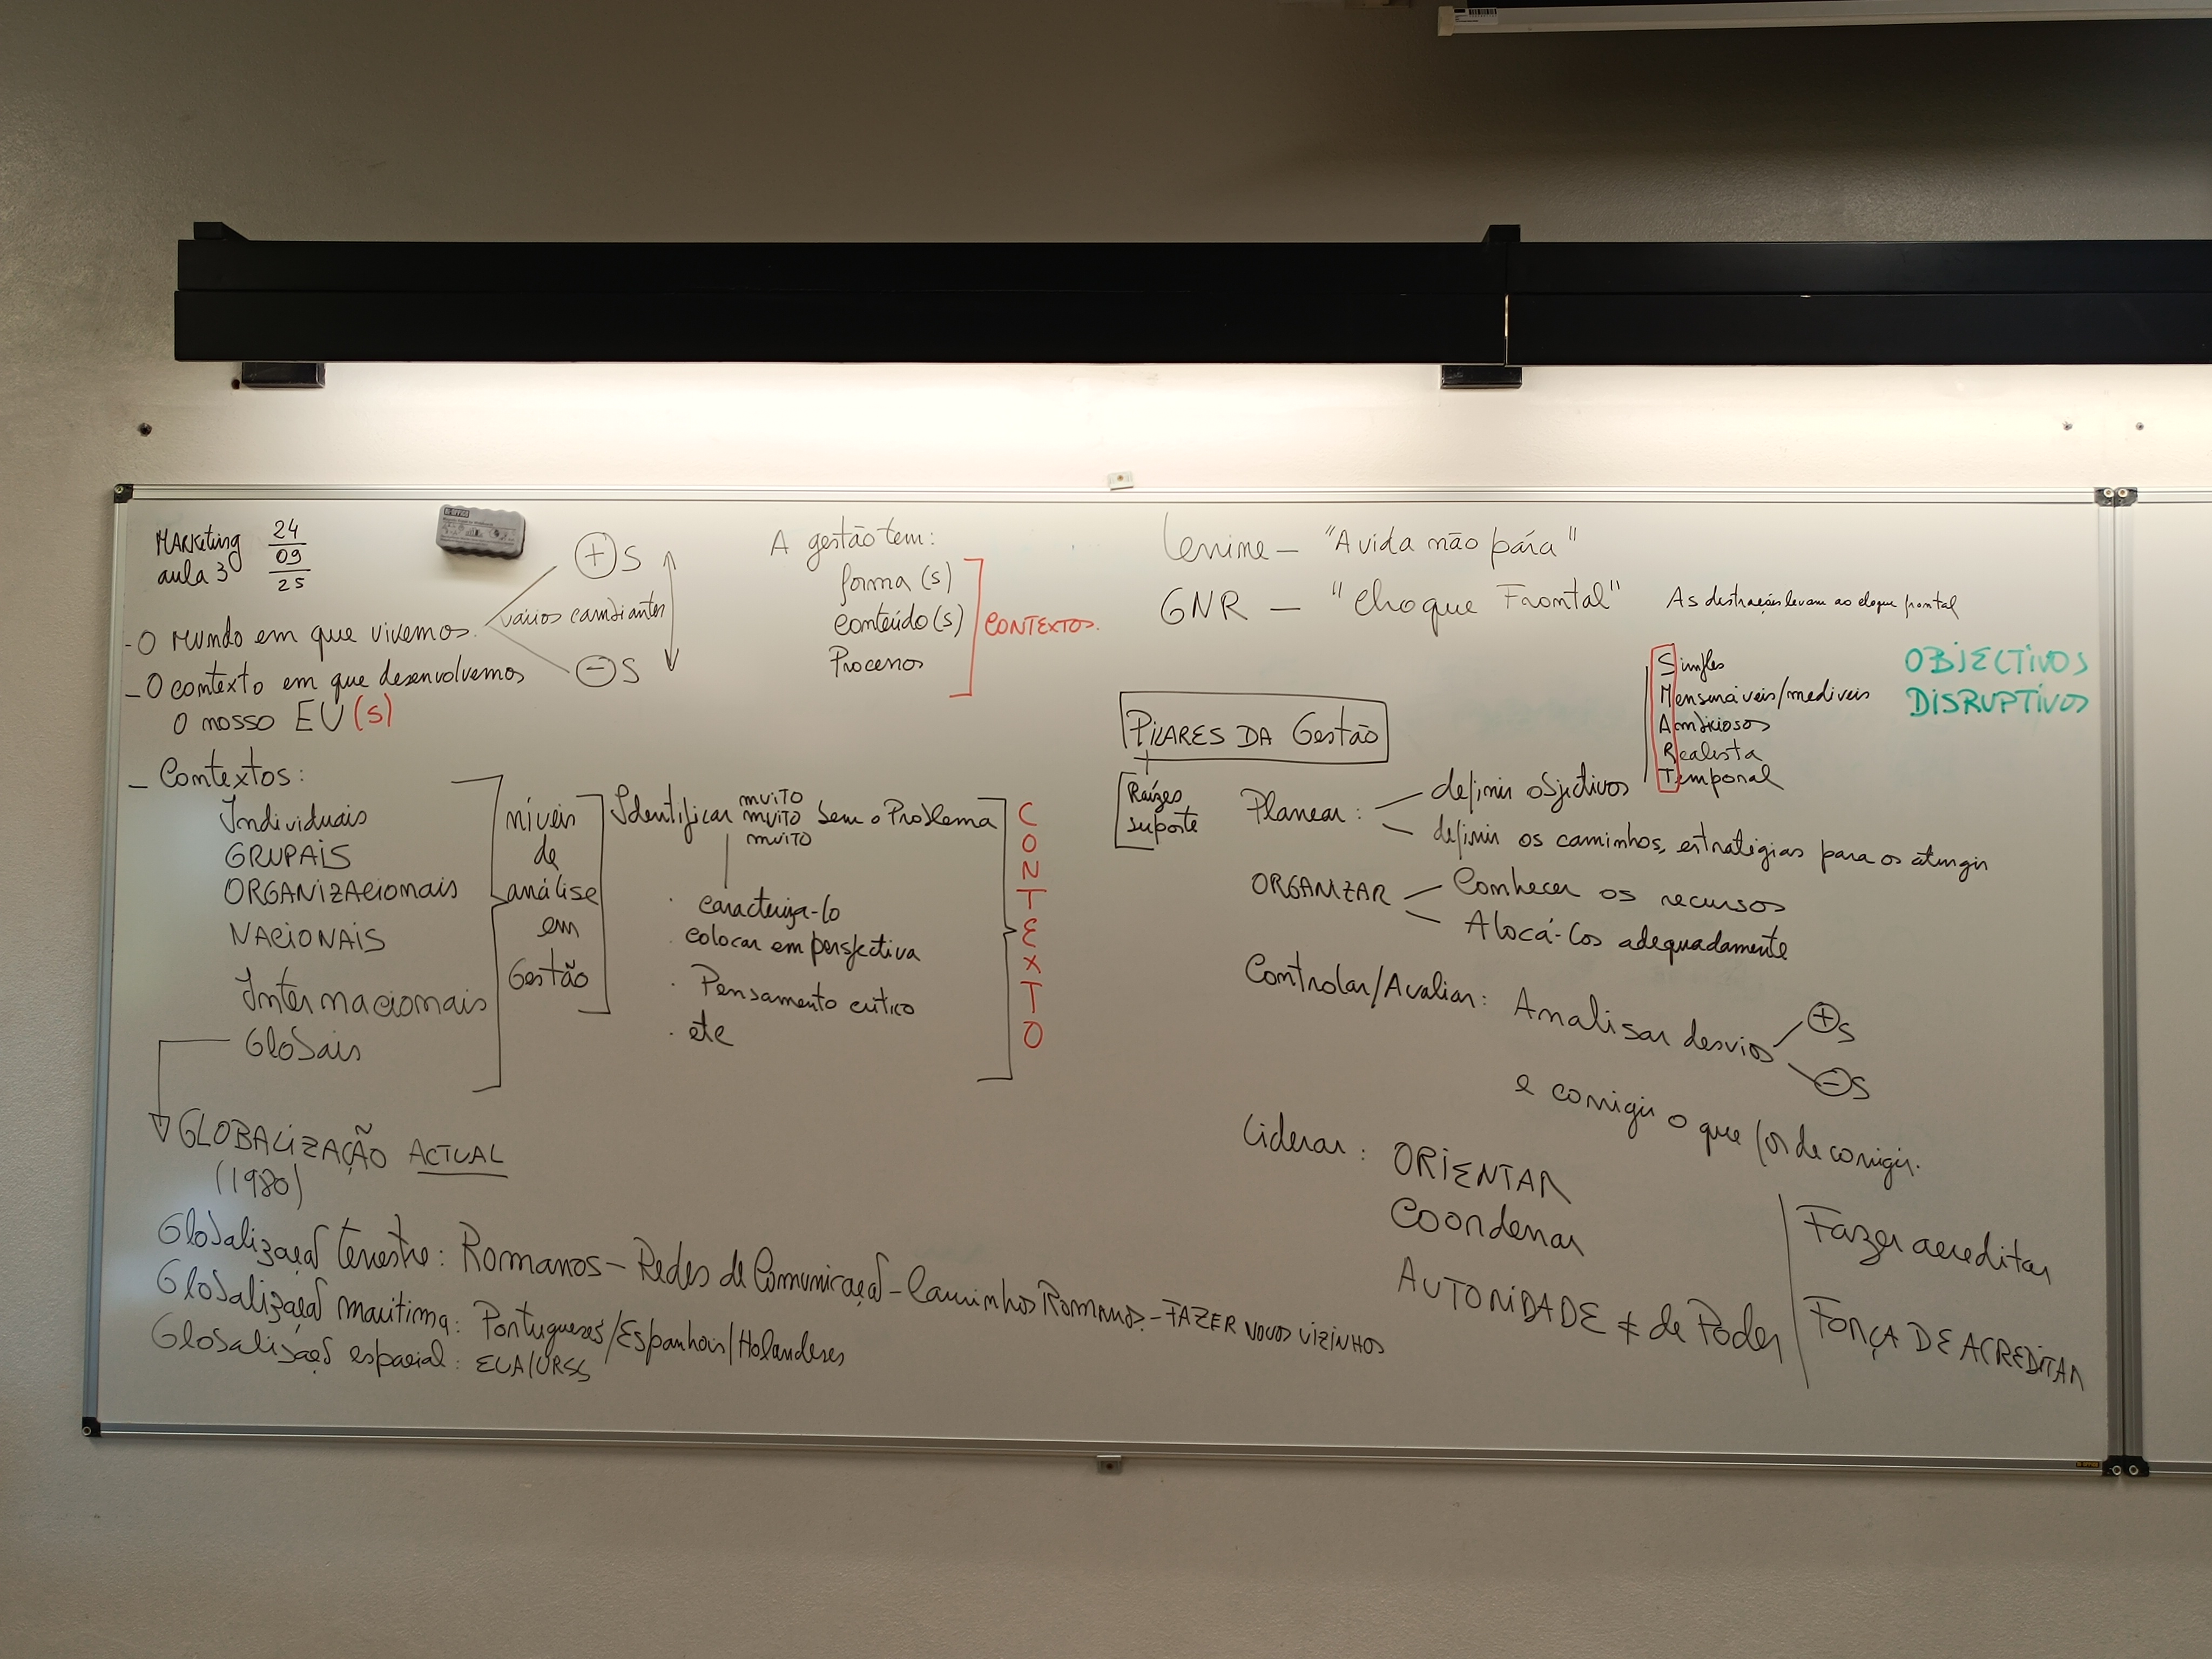 Marketing
aula 3
24
09
25
- O mundo em que vivemos.
vários cambiantes
+ S
- S
- O contexto em que desenvolvemos
o nosso EU(s)
- Contextos:
Individuais
GRUPAIS
ORGANIZACIONAIS
NACIONAIS
Internacionais
Globais
níveis
de
análise
em
Gestão
Identificar muito muito muito bem o Problema
. caracteriza-lo
. colocar em perspectiva
. Pensamento crítico
. etc
CONTEXTO
GLOBALIZAÇÃO ACTUAL
(1980)
Globalização terrestre: Romanos - Redes de Comunicação - Caminhos Romanos. - FAZER NOVOS VIZINHOS
Globalização marítima: Portugueses/Espanhóis/Holandeses
Globalização espacial: EUA/URSS
A gestão tem:
forma(s)
conteúdo(s)
Processos
CONTEXTOS.
Lenine - "A vida não pára"
GNR - "Choque Frontal" As distrações levam ao choque frontal
Simples
Mensuráveis/medíveis
Ambiciosos
Realista
Temporal
OBJECTIVOS
DISRUPTIVOS
PILARES DA Gestão
Raízes
suporte
Planear: definir objectivos
definir os caminhos, estratégias para os atingir
ORGANIZAR Conhecer os recursos
Alocá-los adequadamente
Controlar/Avaliar: Analisar desvios
+ S
- S
e corrigir o que for de corrigir.
Liderar: ORIENTAR
Coordenar
AUTORIDADE ≠ de Poder
Fazer acreditar
FORÇA DE ACREDITAR